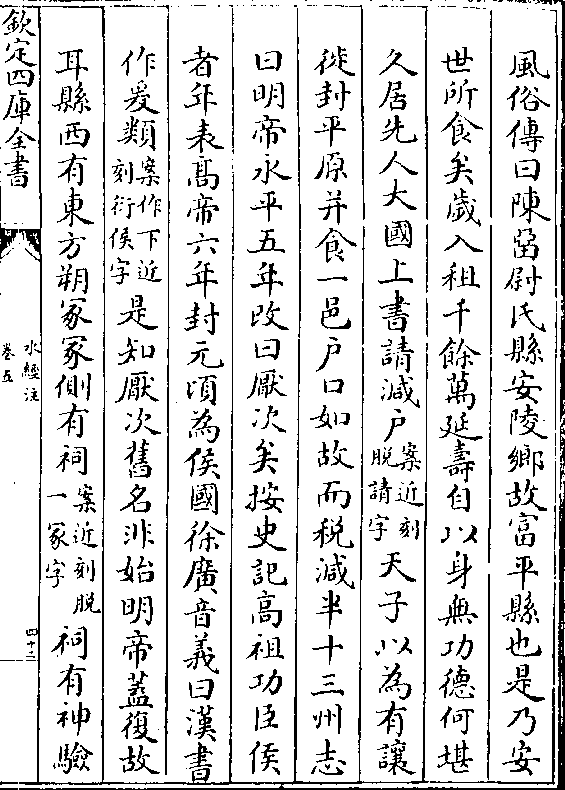 風俗傳曰陳留尉氏縣安陵鄉故富平縣也是乃安
世所食矣歲入租千餘萬延壽自以身無功德何堪
久居先人大國上書請減户案近刻脱請字天子以為有讓
徙封平原并食一邑户口如故而税減半十三州志
曰明帝永平五年改曰厭次矣按史記高祖功臣侯
者年表高帝六年封元頃為侯國徐廣音義曰漢書
作爰類案作下近刻衍侯字是知厭次舊名非始明帝蓋復故
耳縣西有東方朔冢冢側有祠案近刻脱一冢字祠有神驗
欽定四庫全書
水經注
卷五
四十三